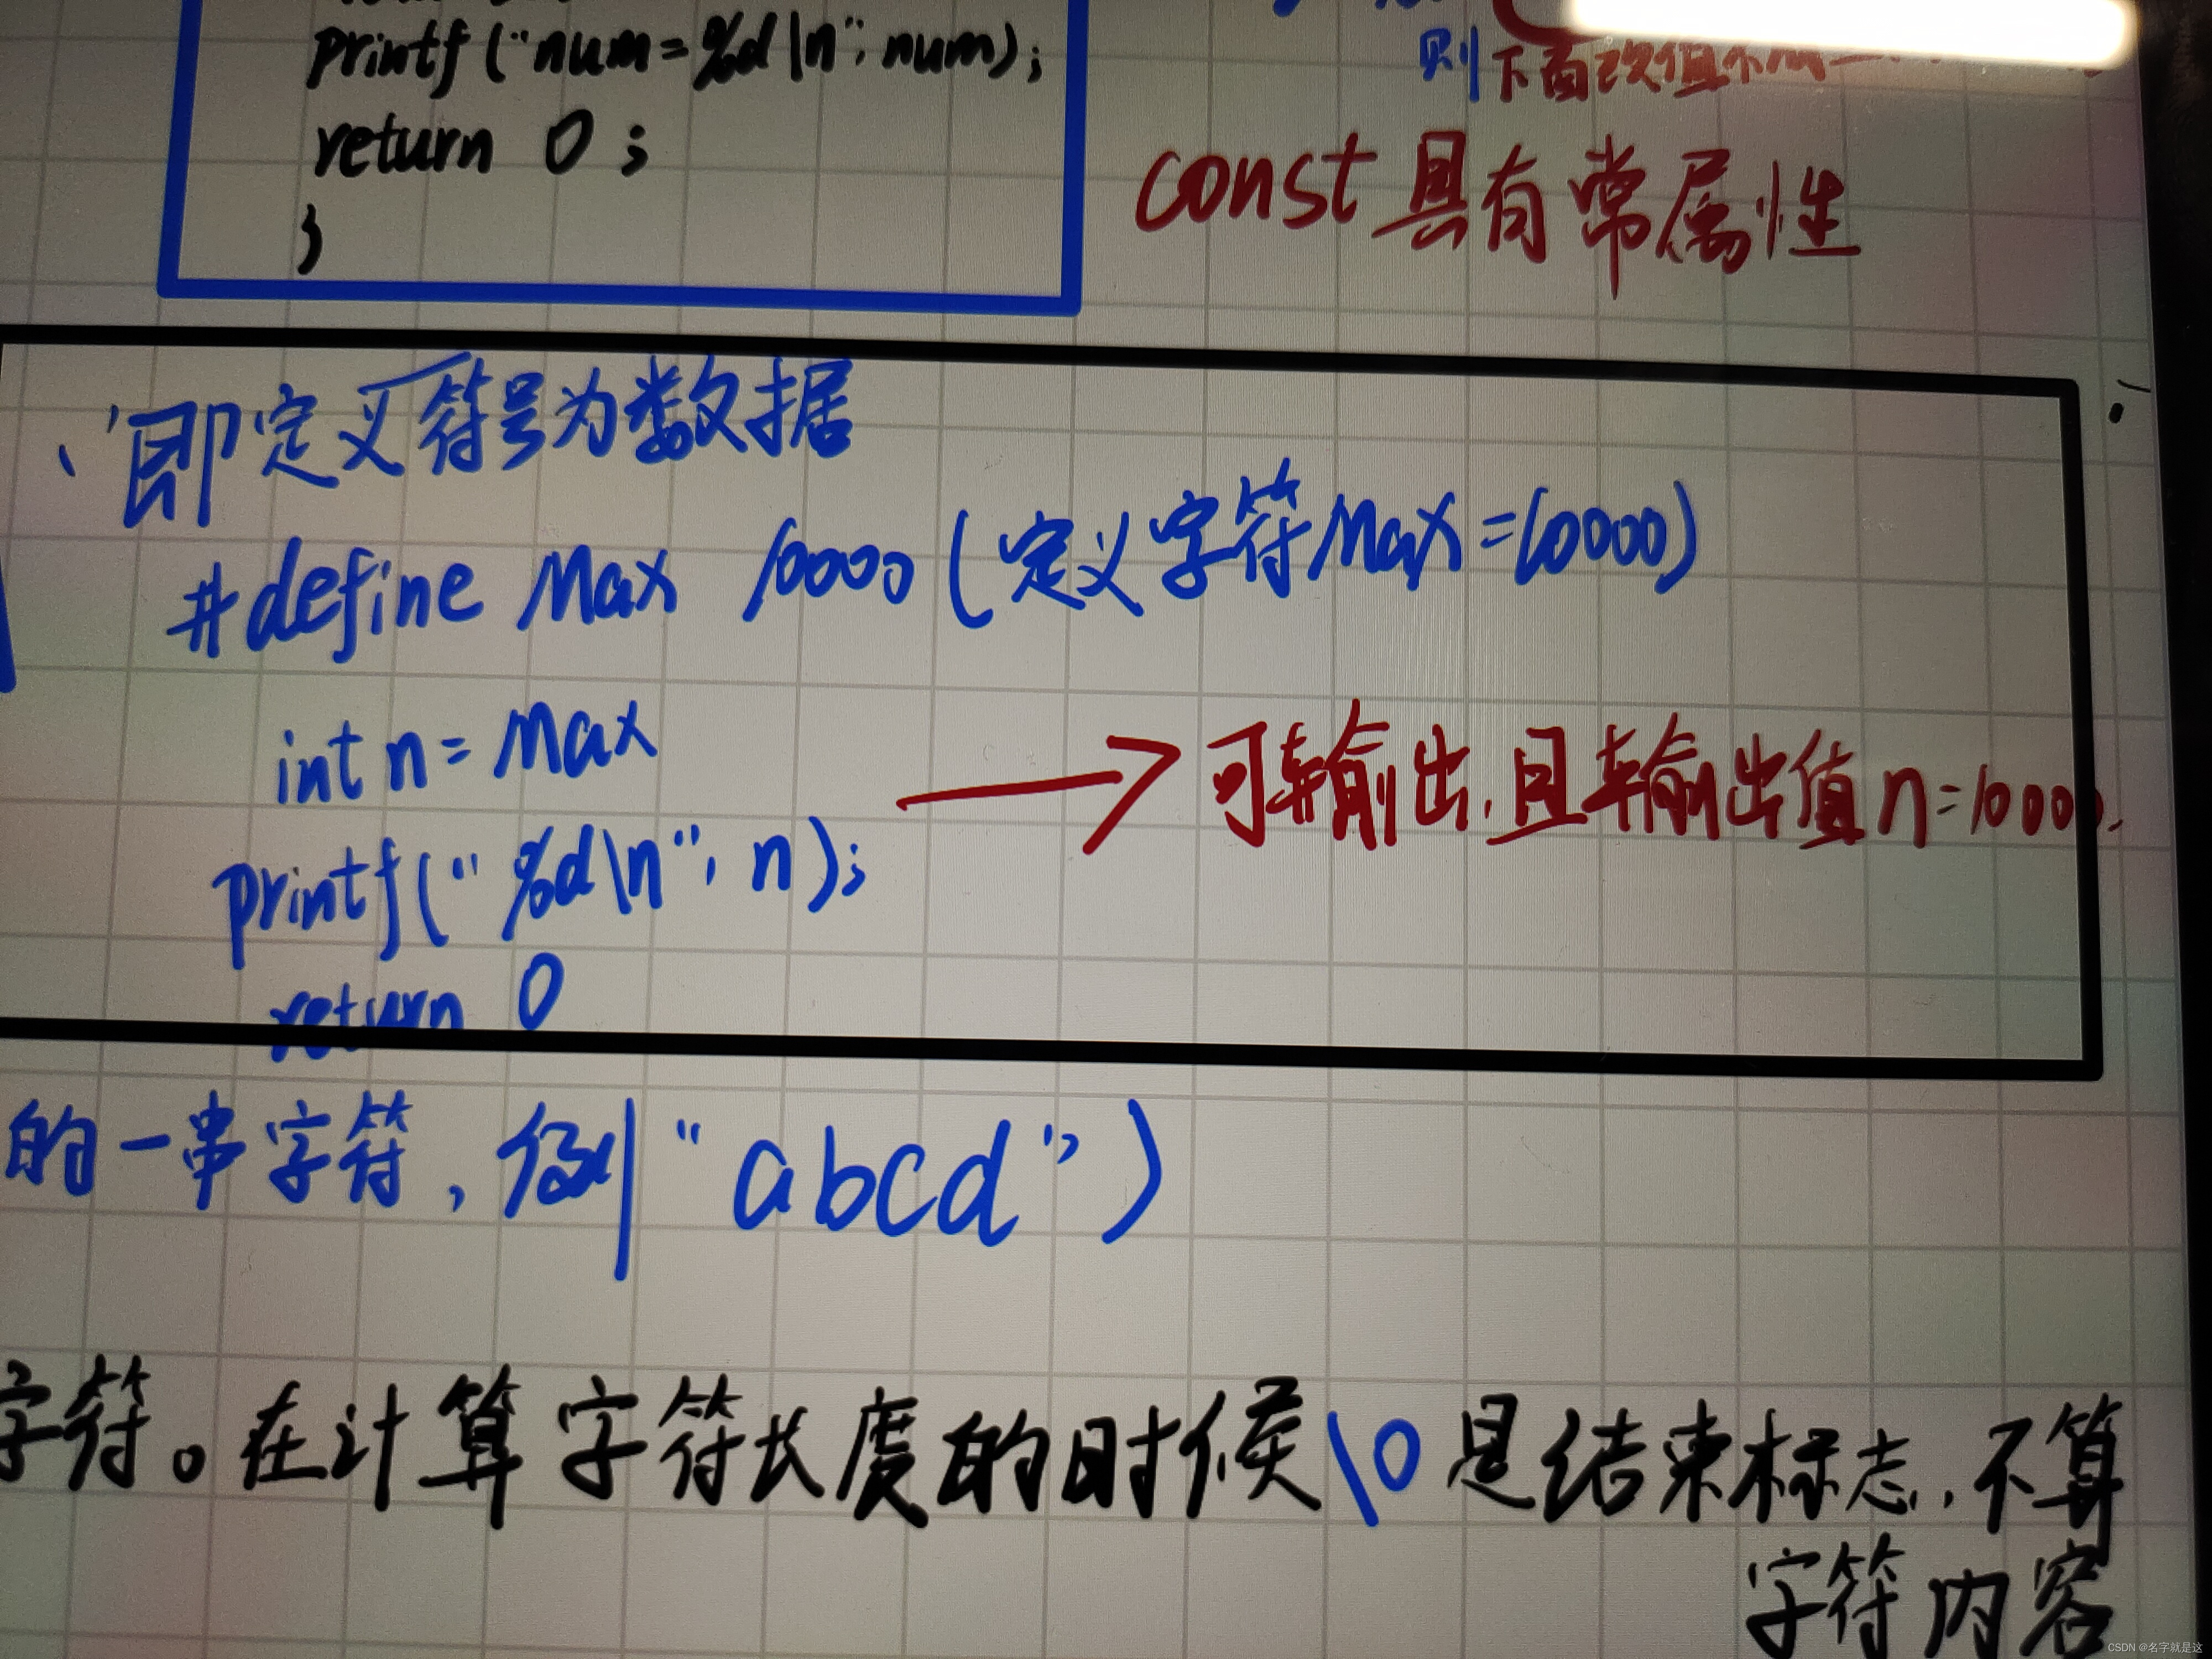 printf("num=%d\n", num);
return 0;
}
则下面改值不
const具有常属性
即定义符号为数据
#define Max 10000(定义字符Max=10000)
int n=Max
printf("%d\n", n);
可输出,且输出值n=10000.
return 0
的一串字符,例"abcd")
字符。在计算字符长度的时候\0是结束标志,不算
字符内容
CSDN @名字就是这